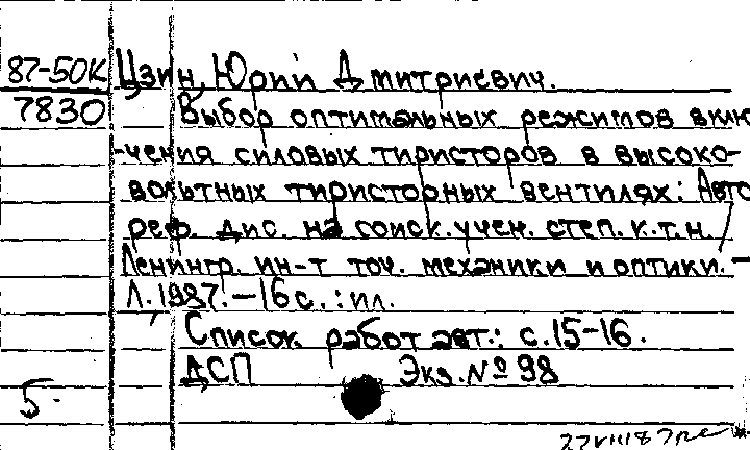 87-50К Цзин, Юрий Дмитриевич.
7830 Выбор оптимальных режимов вклю
-чения силовых тиристоров в высоко-
вольтных тиристорных вентилях: Авто
реф. дис. на соиск. учен. степ. к.т.н. /
Ленингр. ин-т точ. механики и оптики. –
Л. 1987. – 16 с. : ил.
Список работ авт.: с. 15-16.
ДСП Экз. № 98
5-